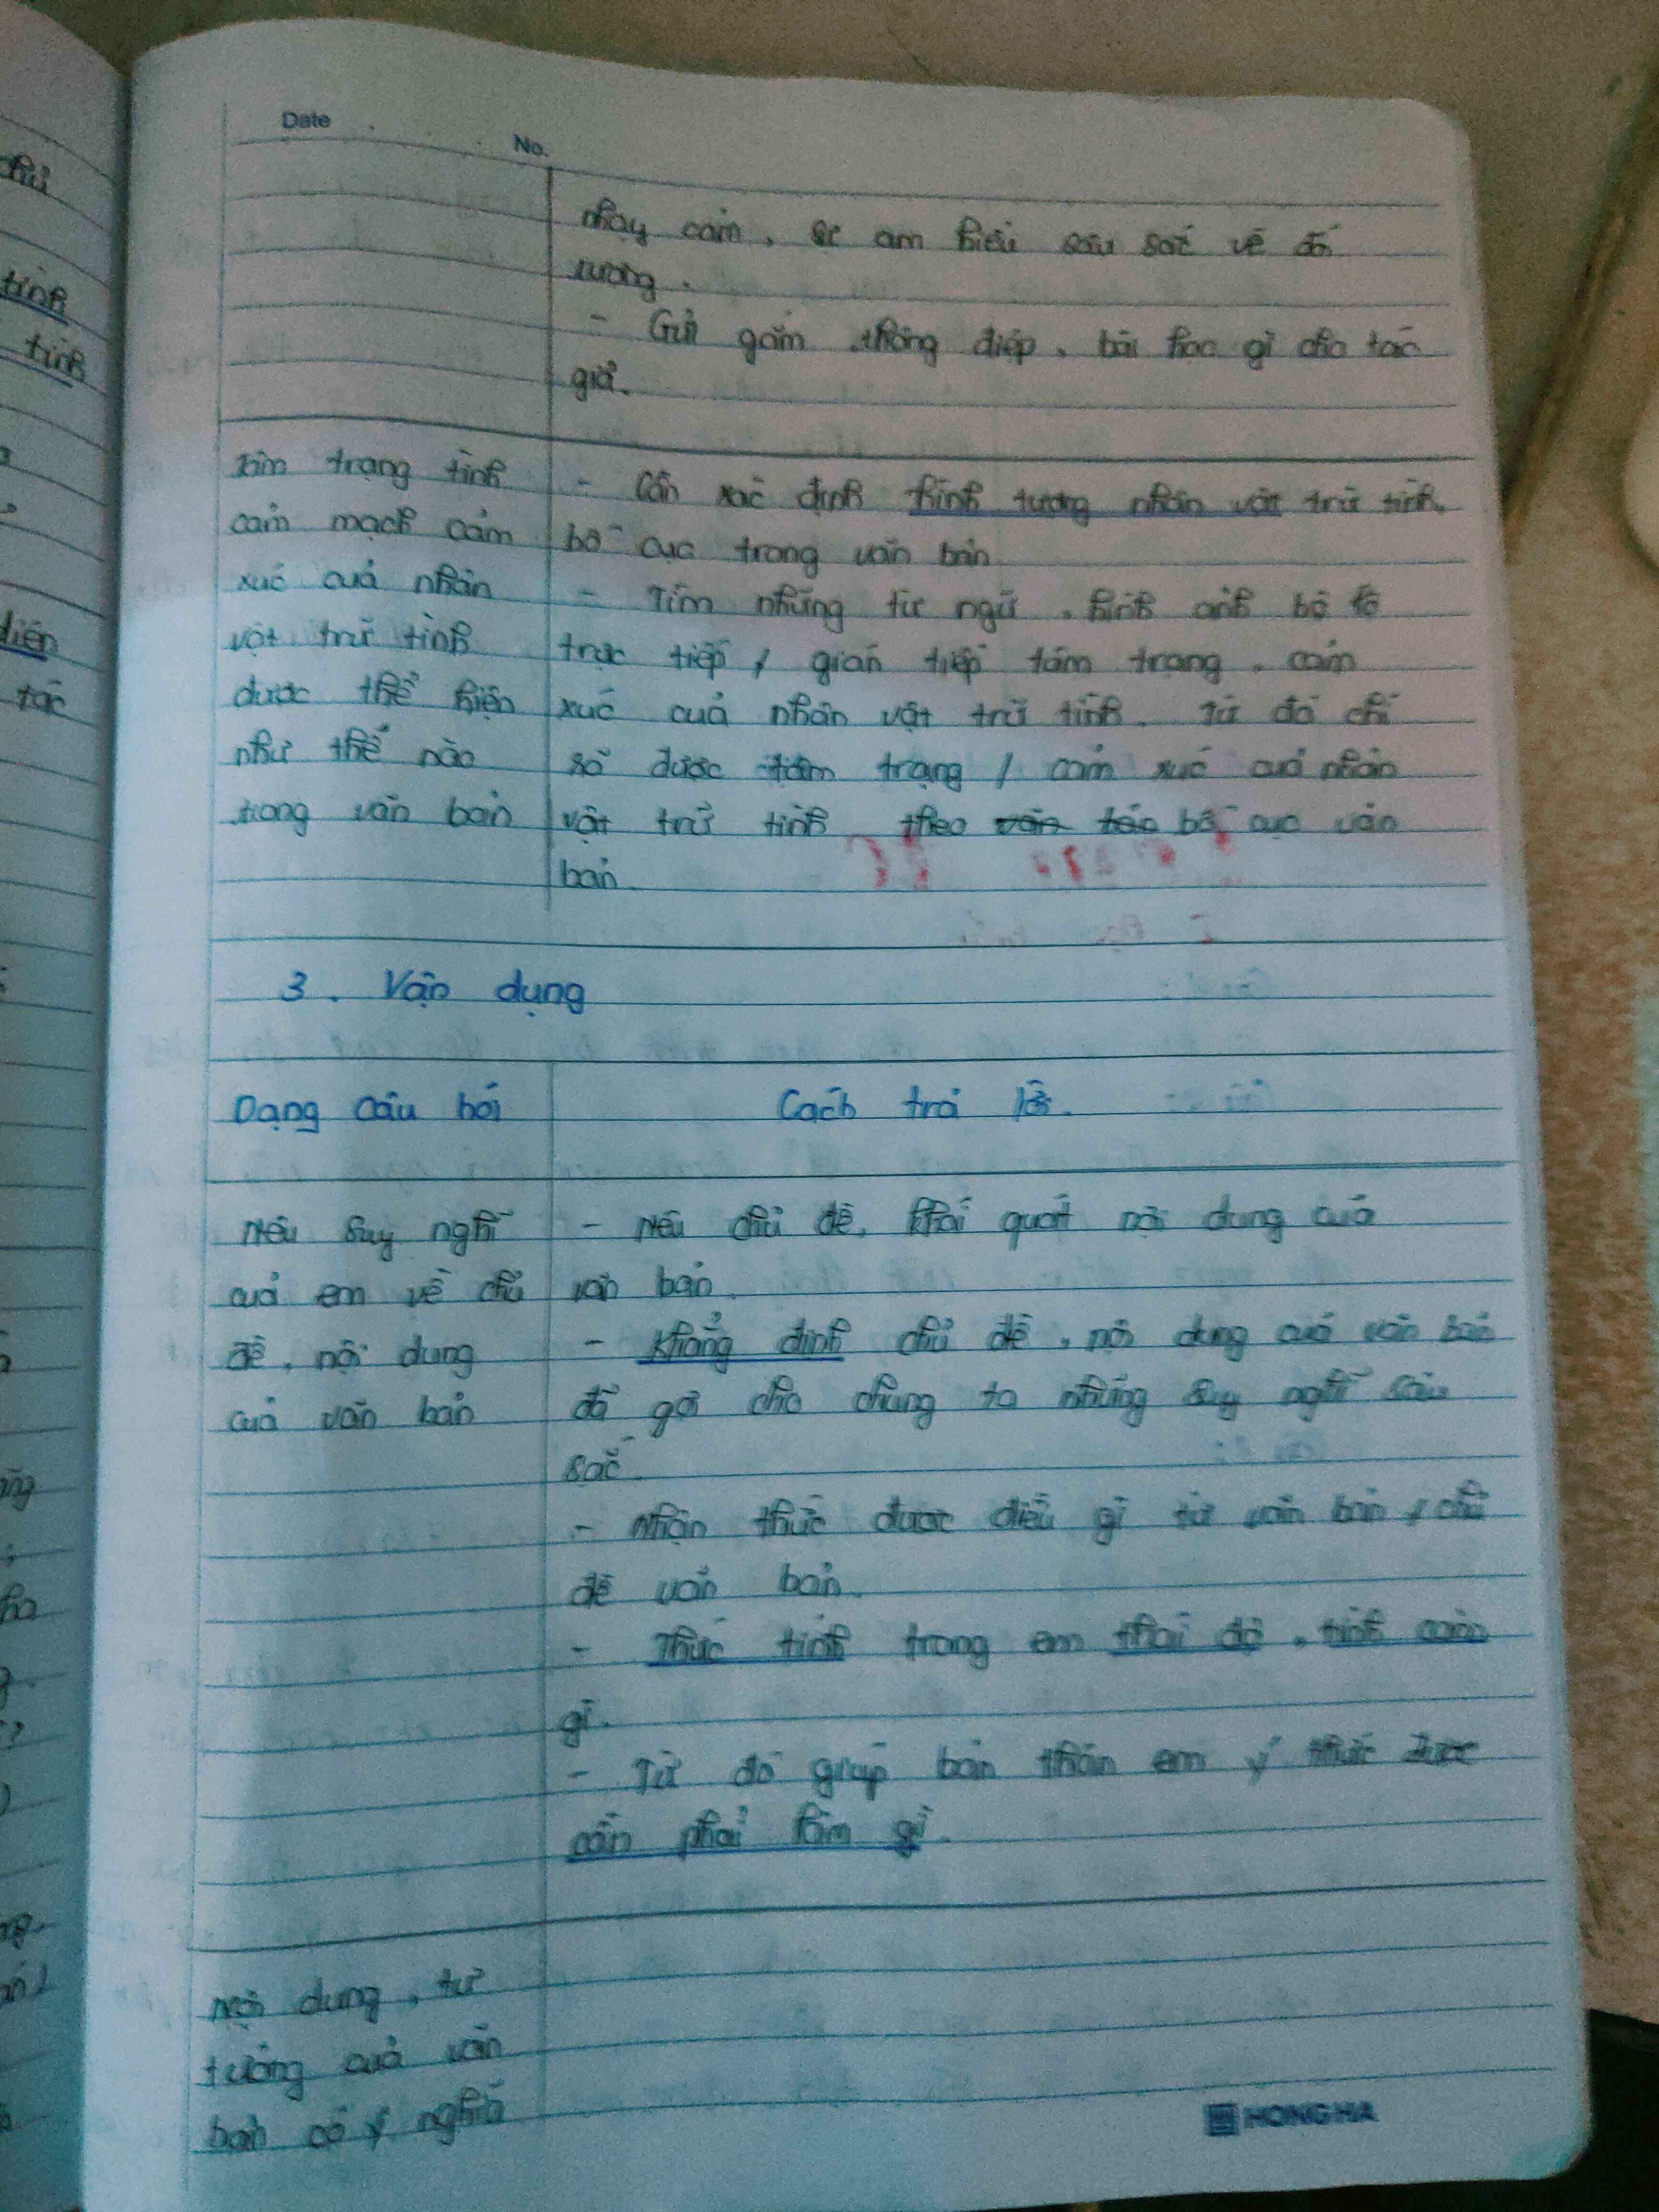 Date
No.
nhạy cảm, sự am hiểu sâu sắc về đối
tượng.
- Gửi gắm thông điệp, bài học gì cho tác
giả.
Tâm trạng tình
cảm mạch cảm
xúc của nhân
vật trữ tình
được thể hiện
như thế nào
trong văn bản
- Cần xác định hình tượng nhân vật trữ tình,
bố cục trong văn bản
- Tìm những từ ngữ, hình ảnh bộ lộ
trực tiếp / gián tiếp tâm trạng, cảm
xúc của nhân vật trữ tình. Từ đó chỉ
rõ được tâm trạng / cảm xúc của nhân
vật trữ tình theo bố cục văn
bản.
3. Vận dụng
Dạng câu hỏi
Cách trả lời.
Nêu suy nghĩ
của em về chủ
đề, nội dung
của văn bản
- Nêu chủ đề, khái quát nội dung của
văn bản.
- Khẳng định chủ đề, nội dung của văn bản
đã gợi cho chúng ta những suy nghĩ sâu
sắc.
- Nhận thức được điều gì từ văn bản / chủ
đề văn bản.
- Thức tỉnh trong em thái độ, tình cảm
gì.
- Từ đó giúp bản thân em ý thức được
cần phải làm gì.
Nội dung, tư
tưởng của văn
bản có ý nghĩa
HONG HA